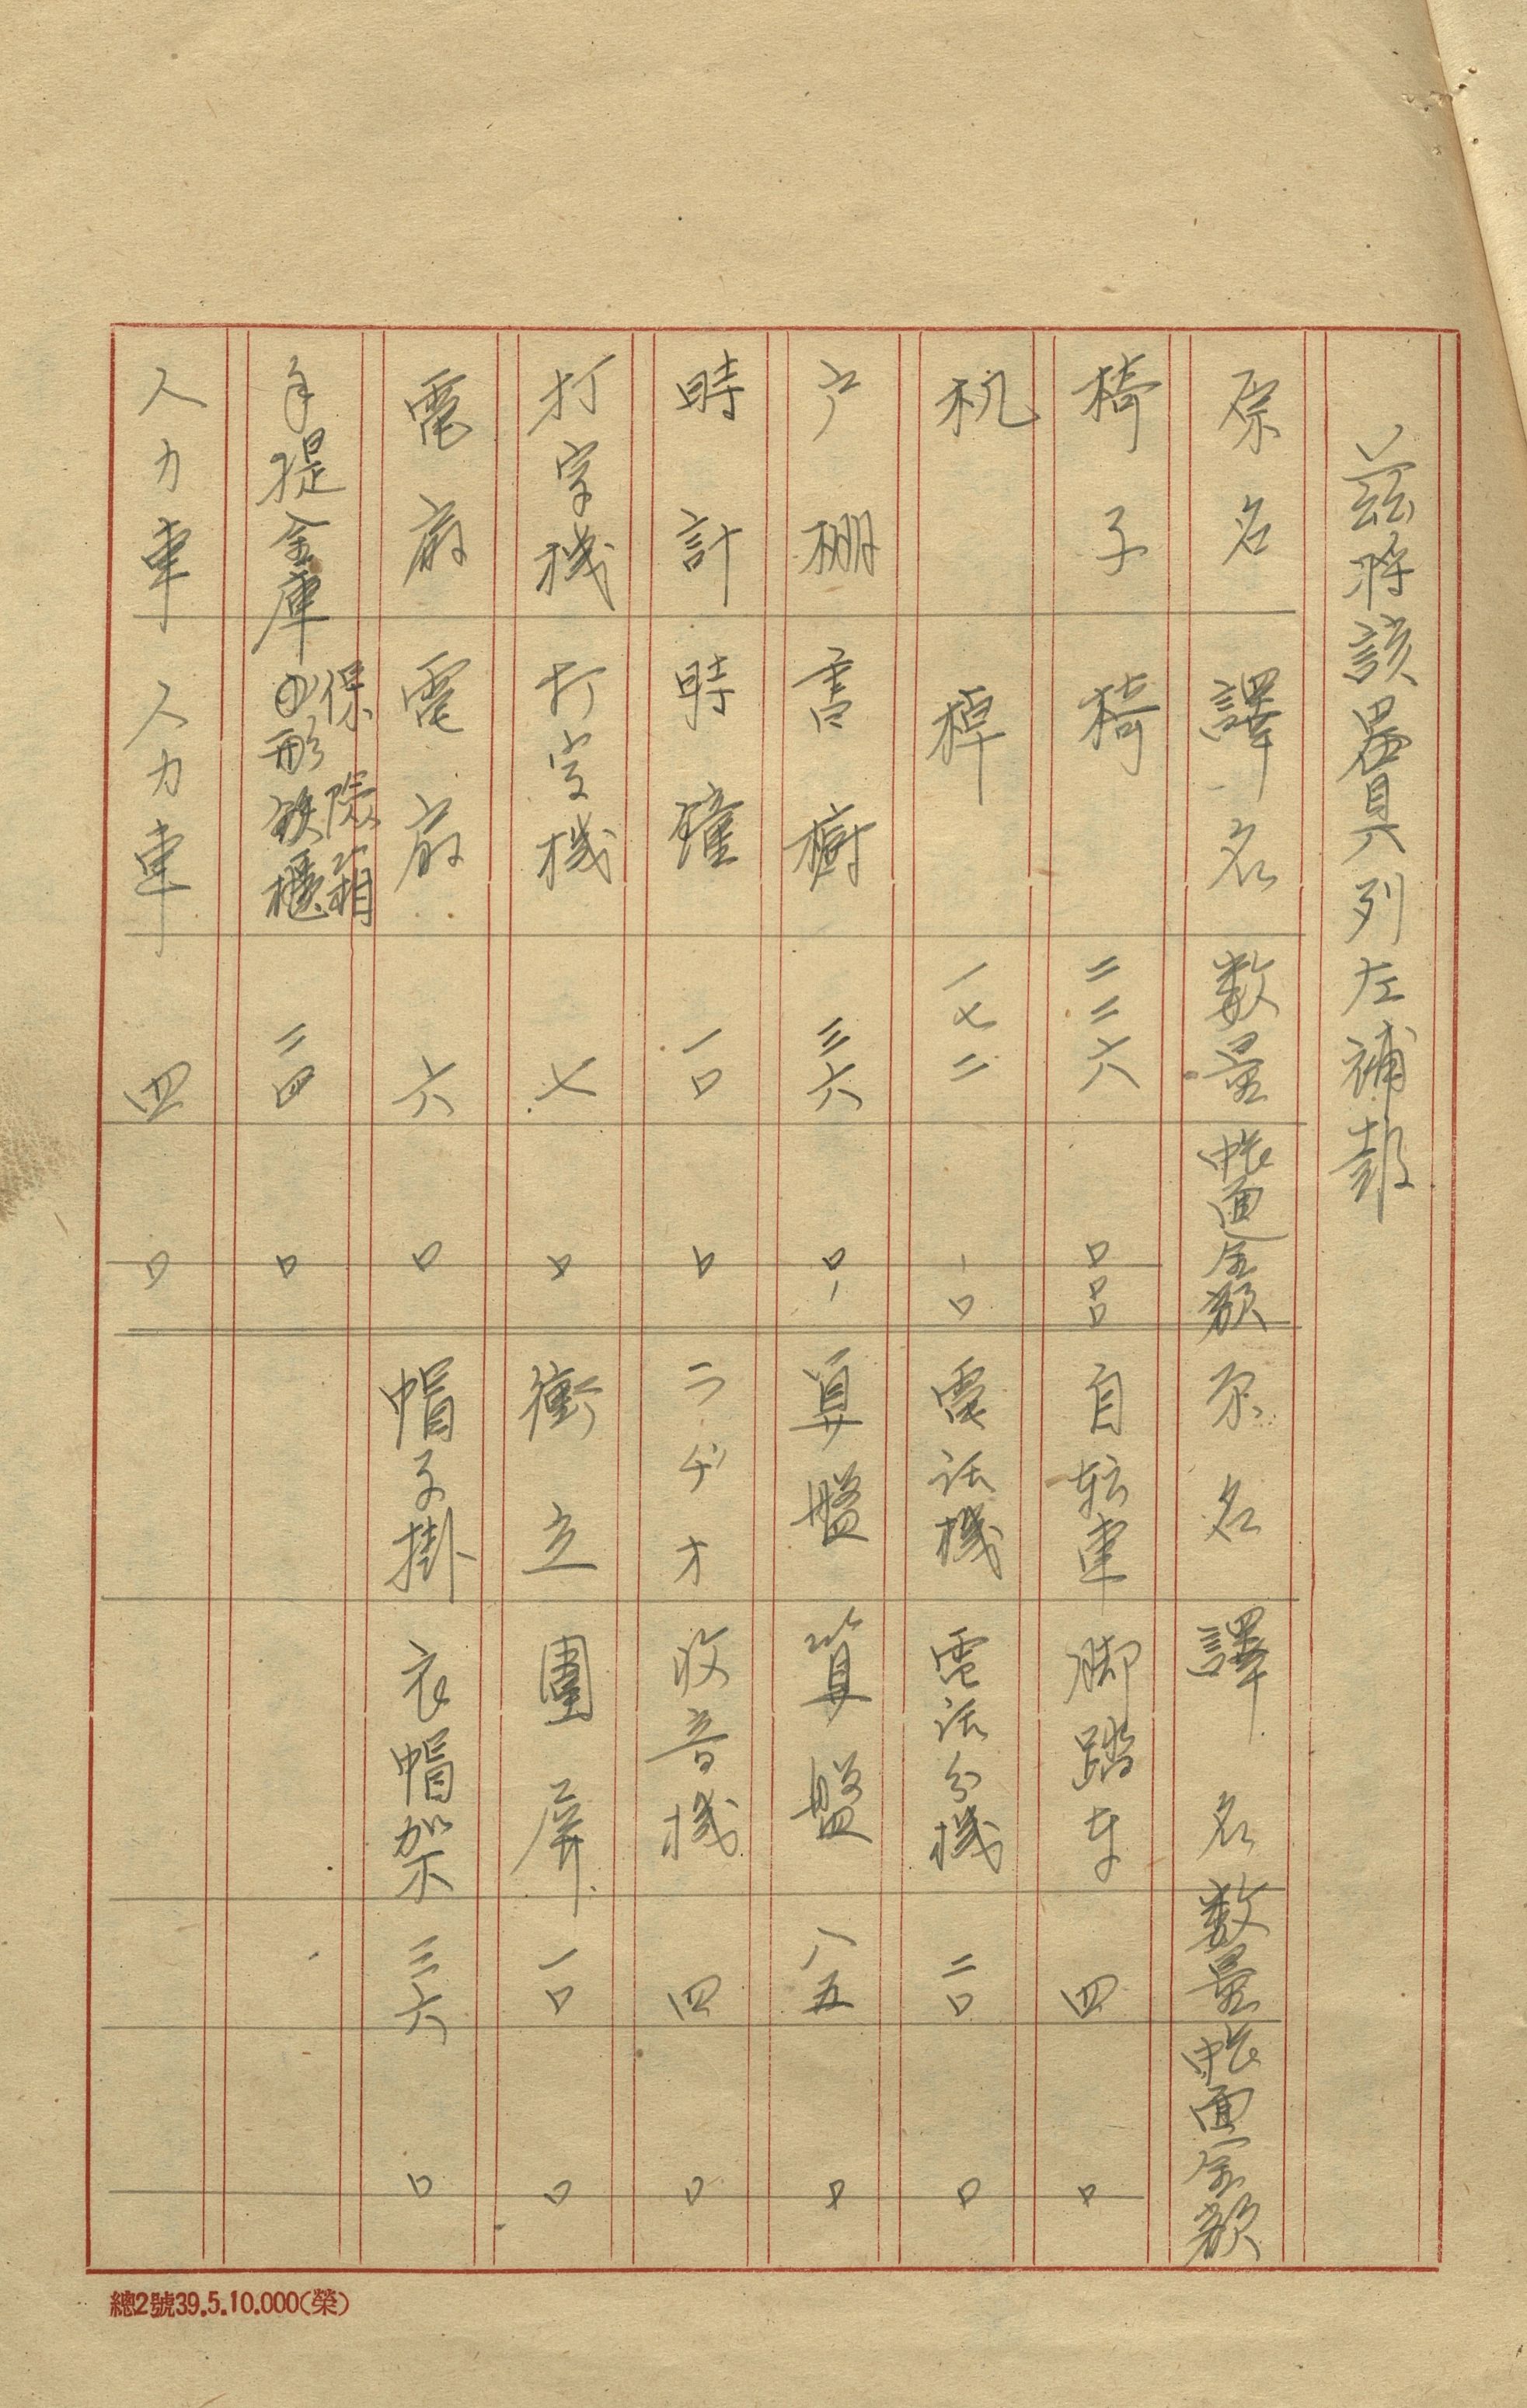 茲將該器具列左補報
原名 譯名 数量 帐面金额 原名 譯名 数量 帐面金额
椅子 椅 二二六 自転車 脚踏车 四 〇
机 棹 一七二 電話機 電話分機 二〇 〇
户棚 書橱 三六 算盤 算盤 八五 〇
時計 時鐘 一〇 〇 ラヂオ 收音機 四 〇
打字機 打字機 七 〇 衝立 圍屏 一〇 〇
電扇 電扇 六 〇 帽子掛 衣帽架 三六 〇
手提金庫 保險箱 形鉄櫃 二四 〇
人力車 人力車 四 〇
總2號39.5.10.000(榮)